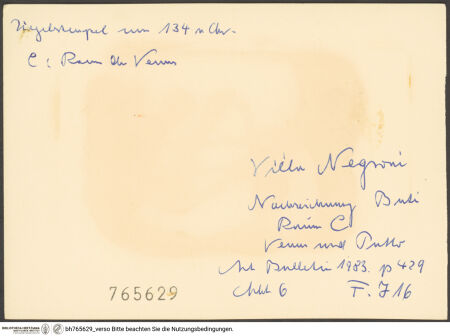 Ziegelstempel um 134 n Chr.
C: Raum der Venus
Villa Negroni
Nachzeichnung Buti
Raum C
Venus und Putto
Art Bulletin 1983. p 429
Abb 6 F. J 16
765629
BIBLIOTHECA HERTZIANA
bh765629_verso Bitte beachten Sie die Nutzungsbedingungen.